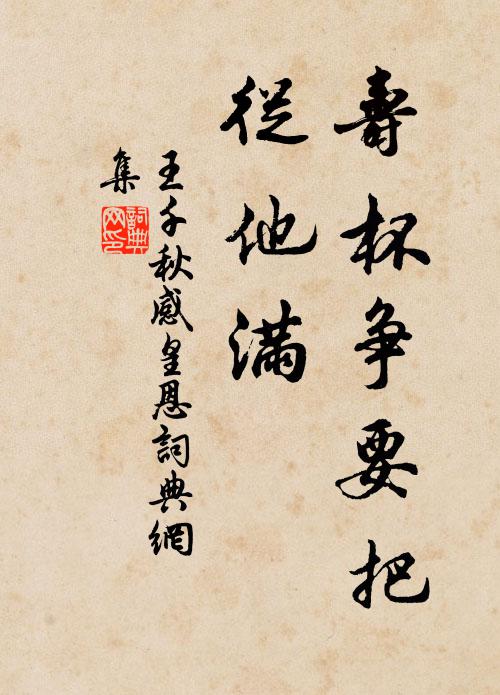 壽杯争要把
從他滿
王千秋感皇恩詞典網
集
詞典
网印